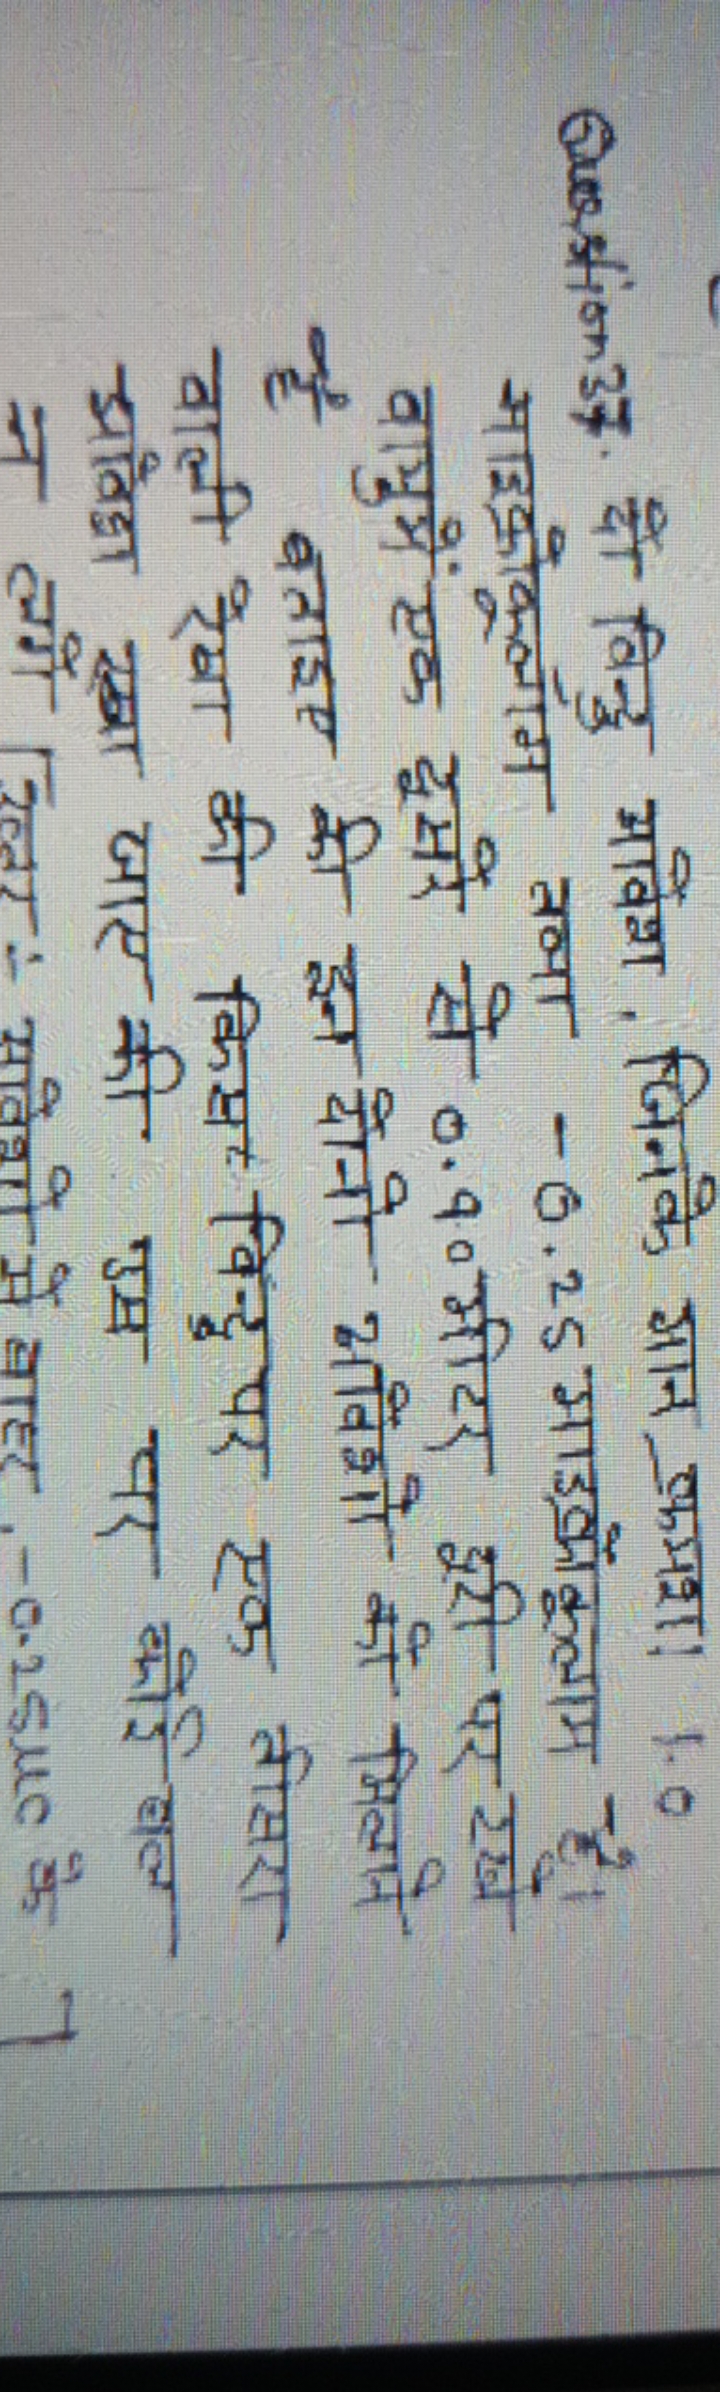 Question 37. दो बिन्दु आवेश, जिनके मान क्रमशः 1.0
माइक्रोकूलॉम तथा -0.25 माइक्रोकूलाम है।
वायुमें एक दूसरे से 0.90 मीटर दूरी पर रखे
है बताइए की इन दोनो आवेशो को मिलाने
वाली रेखा की किस बिन्दु पर एक तीसरा
आवेश रखा जाए की उस पर कोई बल
न लगे [उत्तर :- आवेशो से बाहर, -0.25μC के ]